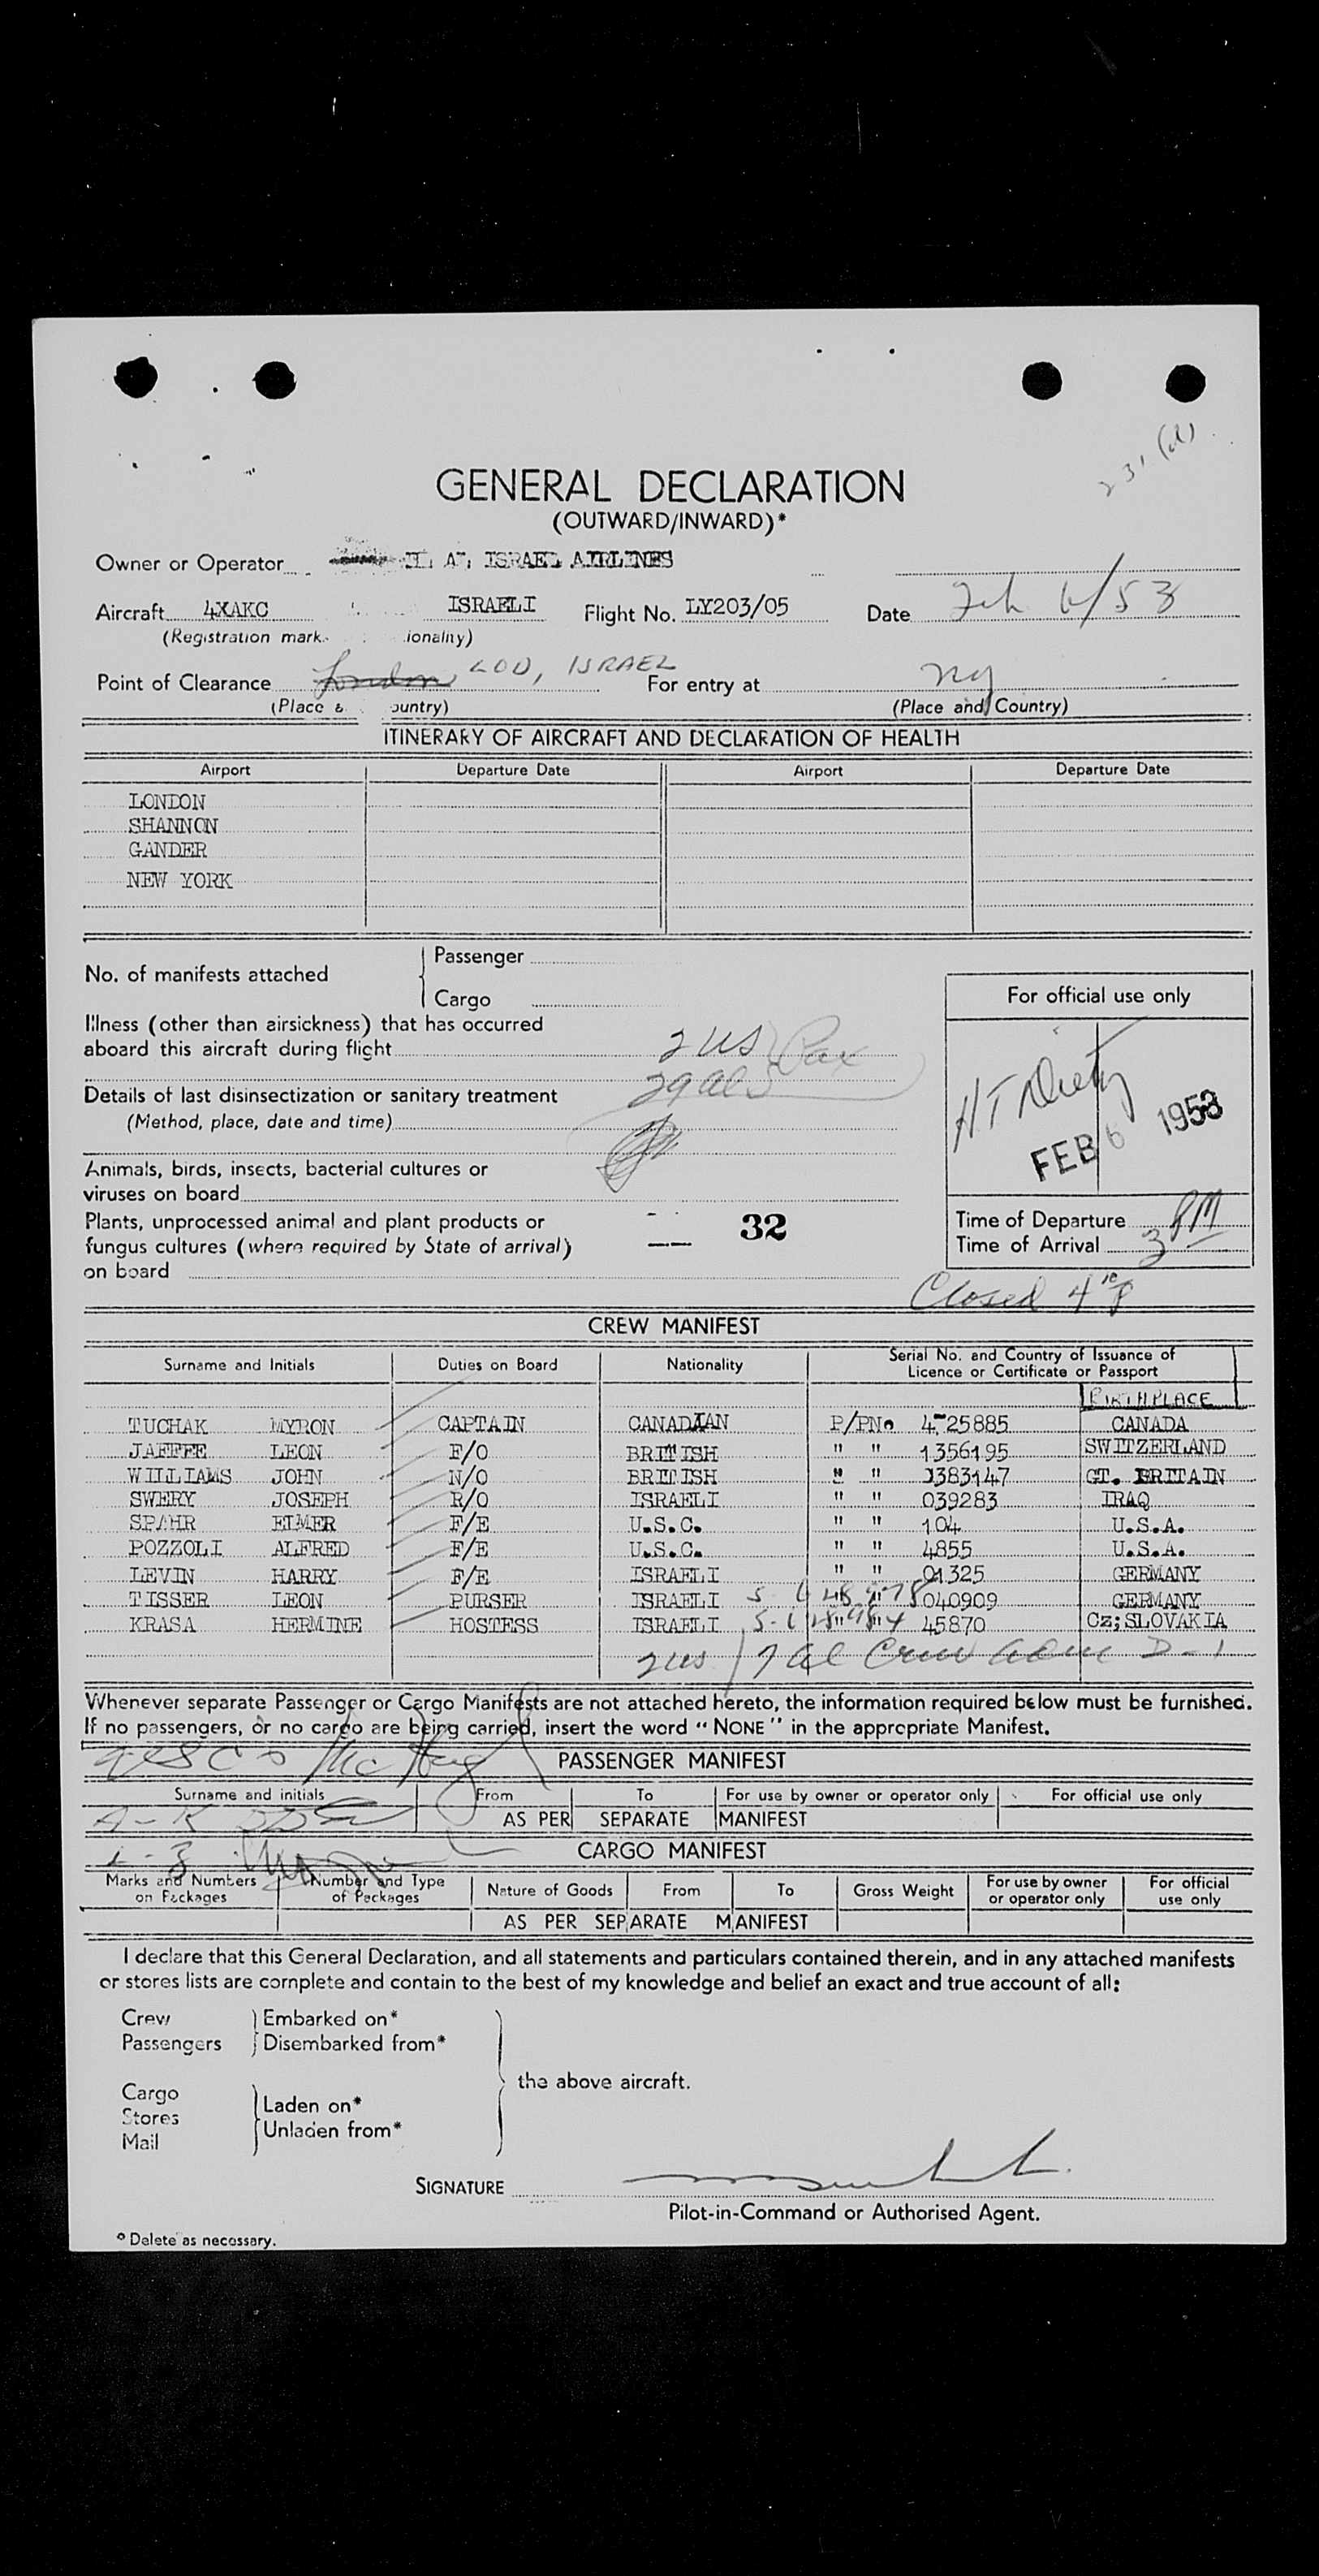 231 (d)
GENERAL DECLARATION
(OUTWARD/INWARD)*
Owner or Operator ISRAEL AIRLINES
Aircraft 4XAKC ISRAELI Flight No. LY203/05 Date Feb 6/53
(Registration mark. ionality)
Point of Clearance London LOD, ISRAEL For entry at NY
(Place & ountry) (Place and Country)
ITINERARY OF AIRCRAFT AND DECLARATION OF HEALTH
Airport Departure Date Airport Departure Date
LONDON
SHANNON
GANDER
NEW YORK
No. of manifests attached
Passenger
Cargo
For official use only
Illness (other than airsickness) that has occurred
aboard this aircraft during flight 2 US Pax
29 als
Details of last disinsectization or sanitary treatment
(Method, place, date and time)
FEB 6 1953
Animals, birds, insects, bacterial cultures or
viruses on board
Plants, unprocessed animal and plant products or
fungus cultures (where required by State of arrival)
on board
32
Time of Departure
Time of Arrival 3 PM
Closed 4 10 P
CREW MANIFEST
Surname and Initials Duties on Board Nationality Serial No. and Country of Issuance of Licence or Certificate or Passport
BIRTHPLACE
TUCHAK MYRON CAPTAIN CANADIAN P/PNo 4-25885 CANADA
JAEFFE LEON F/O BRITISH " " 1356195 SWITZERLAND
WILLIAMS JOHN N/O BRITISH " " 1383147 GT. BRITAIN
SWERY JOSEPH R/O ISRAELI " " 039283 IRAQ
SPAHR ELMER F/E U.S.C. " " 104 U.S.A.
POZZOLI ALFRED F/E U.S.C. " " 4855 U.S.A.
LEVIN HARRY F/E ISRAELI " " 01325 GERMANY
TISSER LEON PURSER ISRAELI " " 040909 GERMANY
KRASA HERMINE HOSTESS ISRAELI " " 45870 Cz;SLOVAKIA
2 us / 7 al Crew adm D-1
Whenever separate Passenger or Cargo Manifests are not attached hereto, the information required below must be furnished.
If no passengers, or no cargo are being carried, insert the word "NONE" in the appropriate Manifest.
PASSENGER MANIFEST
Surname and initials From To For use by owner or operator only For official use only
A-K
AS PER SEPARATE MANIFEST
CARGO MANIFEST
Marks and Numbers on Packages Number and Type of Packages Nature of Goods From To Gross Weight For use by owner or operator only For official use only
AS PER SEPARATE MANIFEST
I declare that this General Declaration, and all statements and particulars contained therein, and in any attached manifests
or stores lists are complete and contain to the best of my knowledge and belief an exact and true account of all:
Crew Embarked on*
Passengers Disembarked from*
the above aircraft.
Cargo
Stores
Mail
Laden on*
Unladen from*
SIGNATURE
Pilot-in-Command or Authorised Agent.
* Delete as necessary.